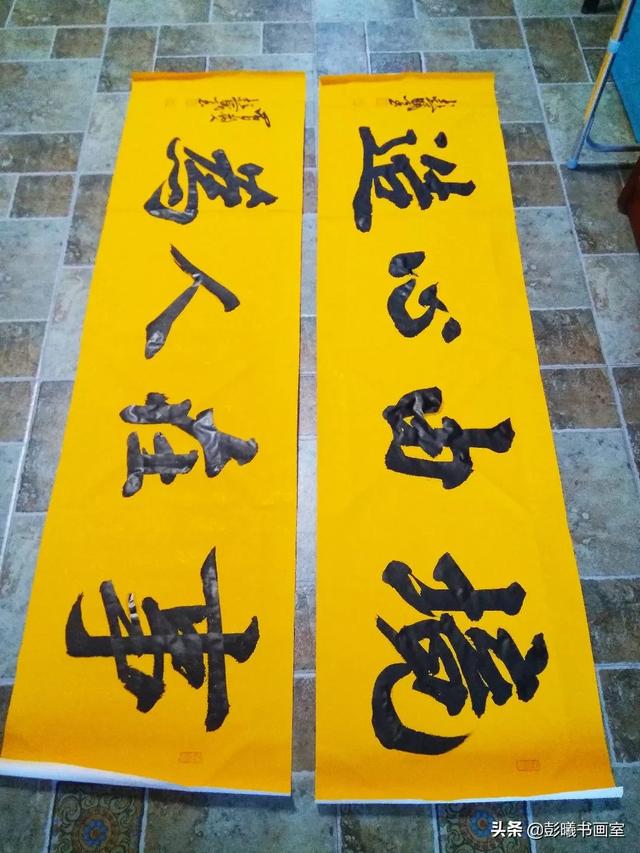 事在人為
境由心造
头条 @彭曦书画室